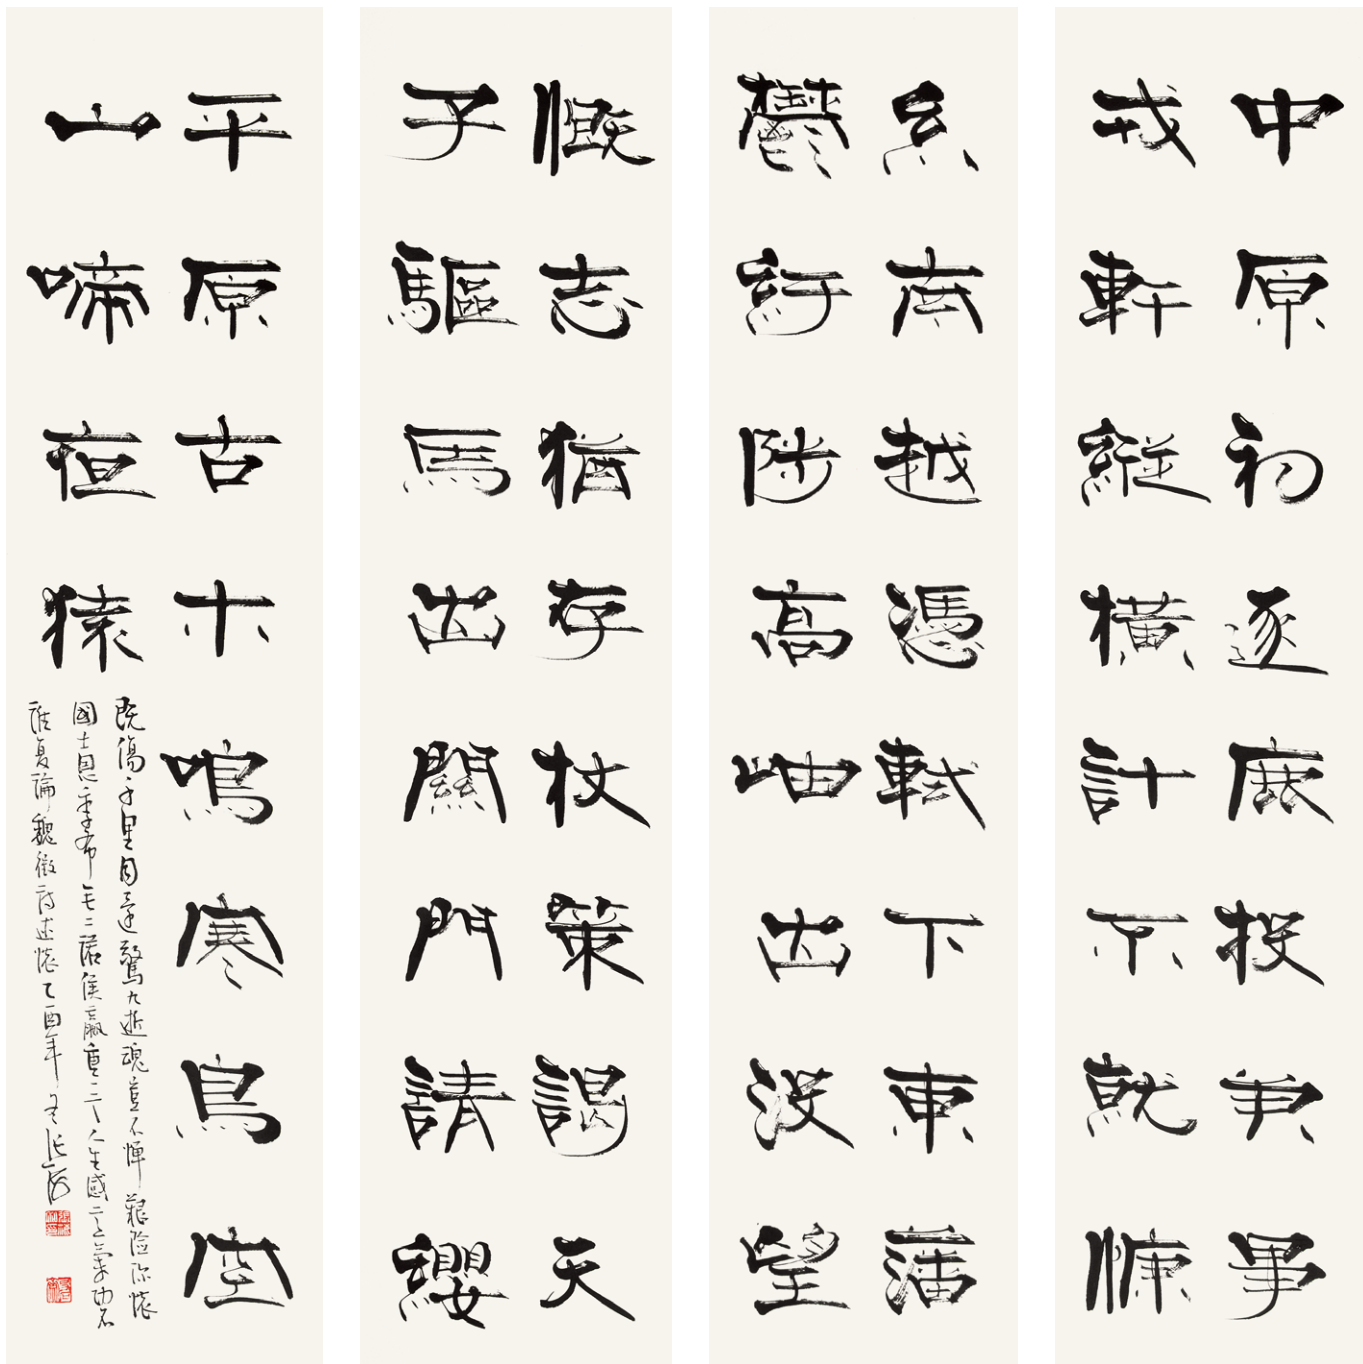 中原初逐鹿投筆事
戎軒縱橫計不就慷
系南越憑軾下東藩
鬱紆陟高岫出沒望
慨志猶存杖策謁天
子驅馬出關門請纓
平原古木鳴寒鳥空
山啼夜猿
既傷千里目還驚九逝魂豈不憚艱險深懷
國士恩季布无二諾侯嬴重一言人生感意氣功名
誰復論魏徵詩述懷乙酉年張海